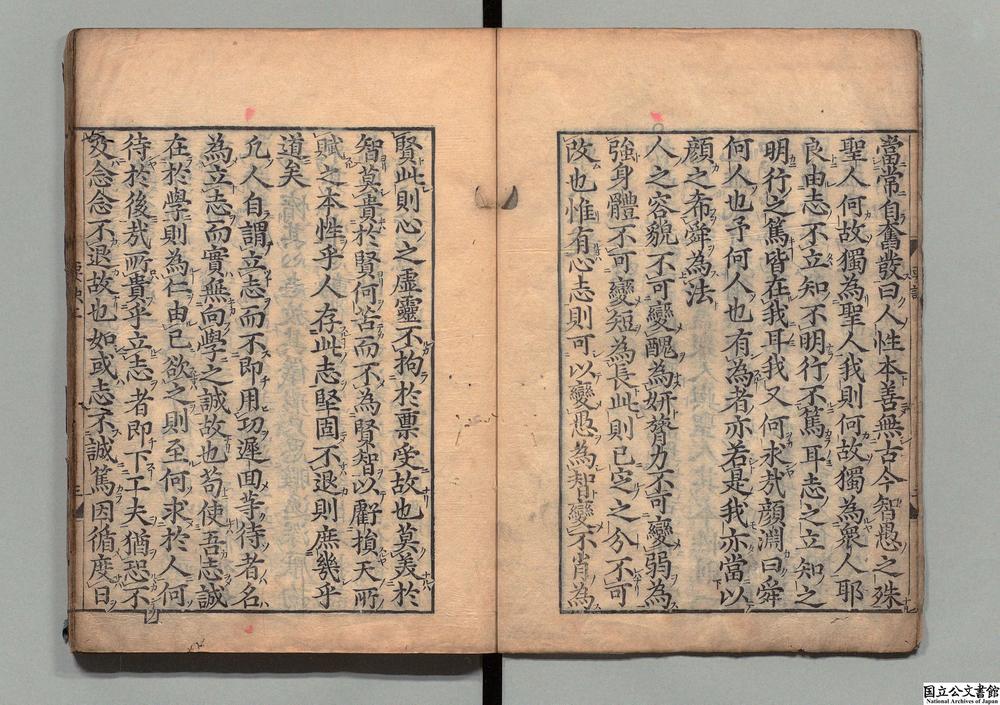 當常自奮發曰人性本善無古今智愚之殊
聖人何故獨為聖人我則何故獨為衆人耶
良由志不立知不明行不篤耳志之立知之
明行之篤皆在我耳我又何求㢤顔淵曰舜
何人也予何人也有為者亦若是我亦當以
顔之希舜為法
人之容貌不可變醜為妍膂力不可變弱為
強身體不可變短為長此則已定之分不可
改也惟有心志則可以變愚為智變不肖為
賢此則心之虛靈不拘於禀受故也莫美於
智莫貴於賢何苦而不為賢智以虧損天所
賦之本性乎人存此志堅固不退則庶幾乎
道矣
凡人自謂立志而不即用功遲回等待者名
為立志而實無向學之誠故也苟使吾志誠
在於學則為仁由己欲之則至何求於人何
待於後㢤所貴乎立志者即下工夫猶恐不
及念念不退故也如或志不誠篤因循度日
國立公文書館
National Archives of Japan